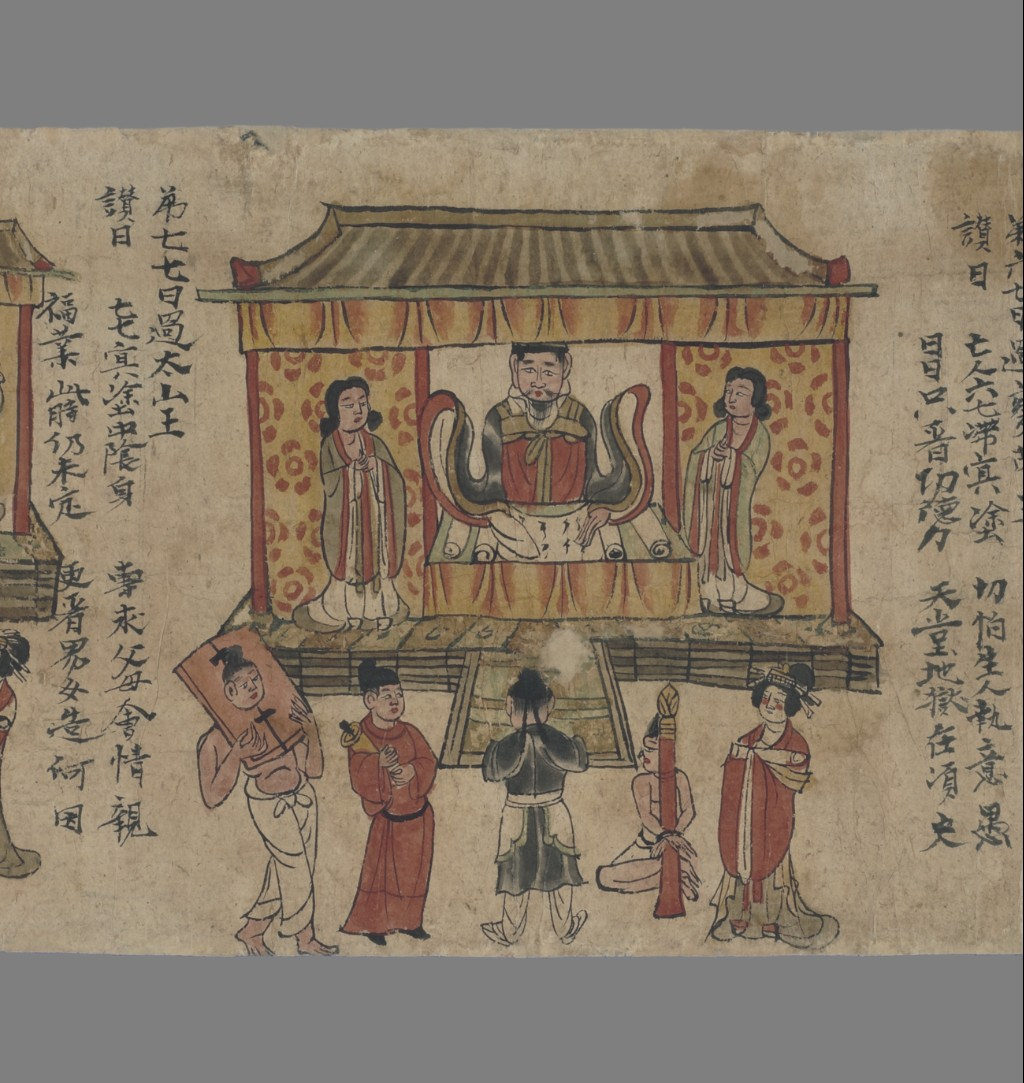 第六七日過變成王
讚曰 亡人六七滞冥塗 切怕生人執意愚
日日只看功德力 天堂地獄在須臾
第七七日過太山王
讚曰 七七冥塗中陰身 專求父母會情親
福業此時仍未定 更看男女造何因